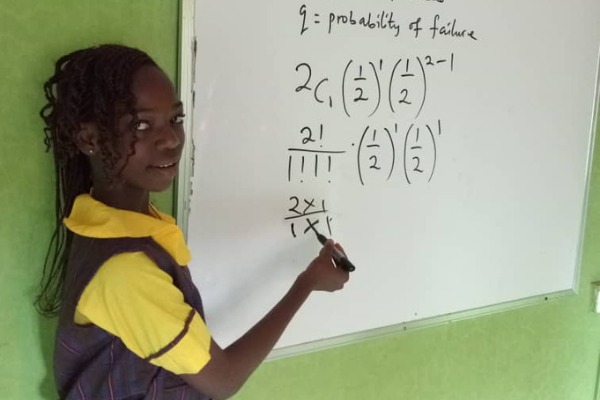 q = probability of failure
2C₁ (1/2)¹ (1/2)²⁻¹
2!/1!1! · (1/2)¹ (1/2)¹
2×1/1×1